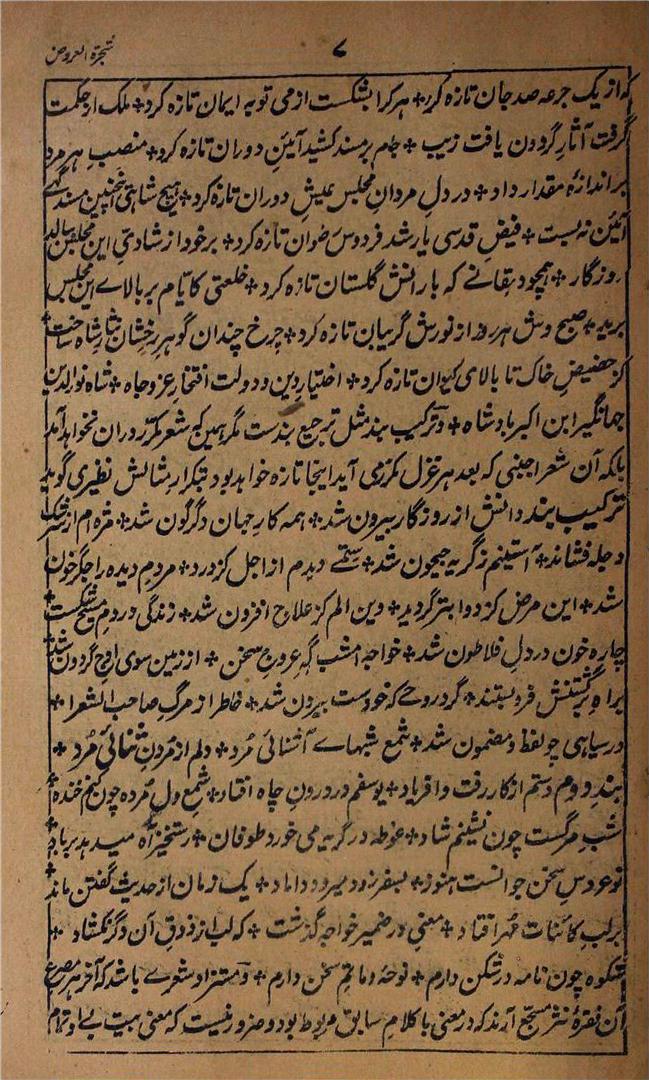 شجرة العروض
۷
که از یک جرعه صد جان تازه کرد ٭ هر کرا بشکست از می توبه ایمان تازه کرد ٭ ملک از حکمت
گرفت آثار گردون یافت زیب ٭ جام بر مسند کشید آئین دوران تازه کرد ٭ منصب هر مرد
بر اندازهٔ مقدار داد ٭ در دل مردان مجلس عیش دوران تازه کرد ٭ هیچ شاهی اینچنین مسند گهے
آئین نه بست ٭ فیض قدسی یار شد فردوس رضوان تازه کرد ٭ برخود از شادی این مجلس ببالد
روزگار ٭ همچو دهقانے که بارانش گلستان تازه کرد ٭ خلعتی کایام بر بالاے این مجلس
برید ٭ صبح وش هر روز از نورش گریبان تازه کرد ٭ چرخ چندان گوهر رخشان نثار شاه ساخت ٭
کز حضیض خاک تا بالای کیوان تازه کرد ٭ اختیار دین و دولت افتخار عز و جاه ٭ شاه نورالدین
جهانگیر ابن اکبر بادشاه ٭ و ترکیب بند مثل ترجیع بندست مگر همین که شعر مکرر دران نخواهد آمد
بلکه آن شعر اجنبی که بعد هر غزل مکرر می آید اینجا تازه خواهد بود بتکرار مثالش نظیری گوید
ترکیب بند دانش از روزگار بیرون شد ٭ همه کار جهان دگرگون شد ٭ مژه ام از سرشک
دجله فشاند ٭ آستینم ز گریه جیحون شد ٭ ستمے دیدم از اجل کز درد ٭ مردم دیده را جگر خون
شد ٭ این مرض کز دوا بتر گردید ٭ وین الم کز علاج افزون شد ٭ زندگی در دم مسیح شکست ٭
چاره خون در دل فلاطون شد ٭ خواجه امشب گه عروج سخن ٭ از زمین سوی اوج گردون شد ٭
براه برگشتنش فروبستند ٭ گرد روحے که خود ست بیرون شد ٭ خاطر از مرگ صاحب الشعرا ٭
در سیاهی چو لفظ و مضمون شد ٭ شمع شبهاے آشنائی مرد ٭ دلم از مردن ثنائی مرد ٭
بند دوم دستم از کار رفت وا فریاد ٭ یوسفم در درون چاه افتاد ٭ شمع و دل مرده چون کنم خنده ٭
شب مرگست چون نشینم شاد ٭ غوطه در گریه می خورد طوفان ٭ رستخیز آه میدهد بر باد ٭
نوعروس سخن جوانست هنوز ٭ بسفر زود میرود داماد ٭ یک زمان از حدیث گفتن ماند ٭
بر لب کائنات مهر افتاد ٭ معنی در ضمیر خواجه گذشت ٭ که لب از ذوق آن دگر نکشاد ٭
شکوه چون نامه در شکن دارم ٭ نوحهٔ و ماتم سخن دارم ٭ و مستزاد شعرے باشد که آخر هر مصرع
آن فقرهٔ نثر مسجع آرند که در معنی با کلام سابق مربوط بود و ضرور نیست که معنی بیت بے او تمام